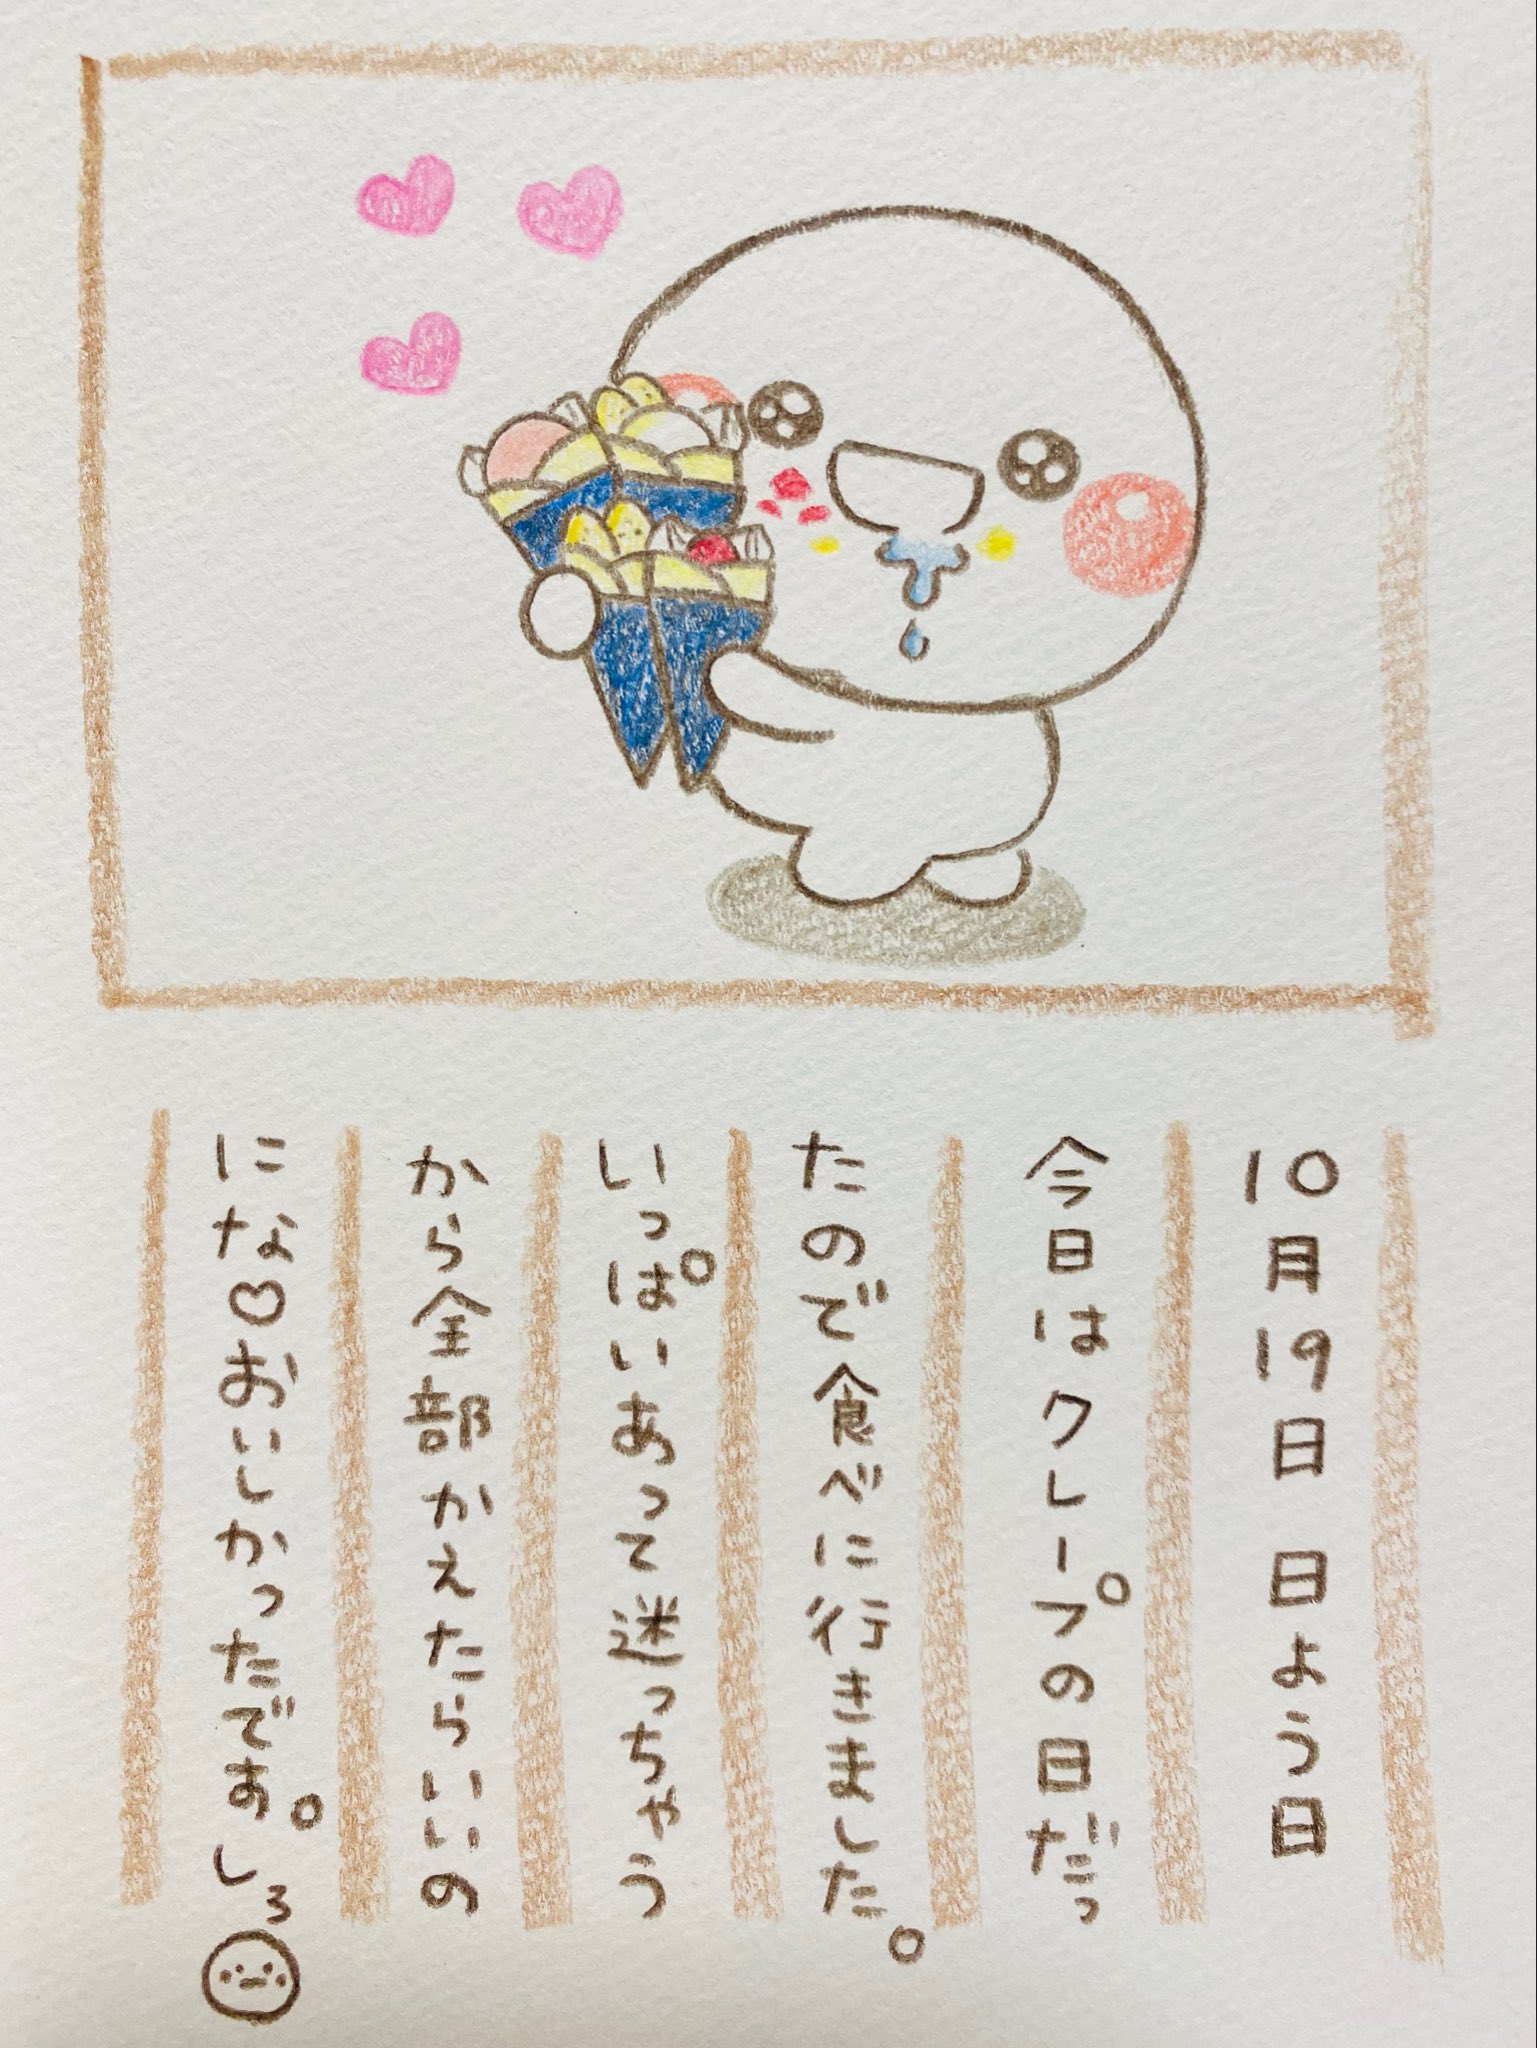 10月19日 日よう日
今日はクレープの日だっ
たので食べに行きました。
いっぱいあって迷っちゃう
から全部かえたらいいの
にな♡おいしかったです。しろ